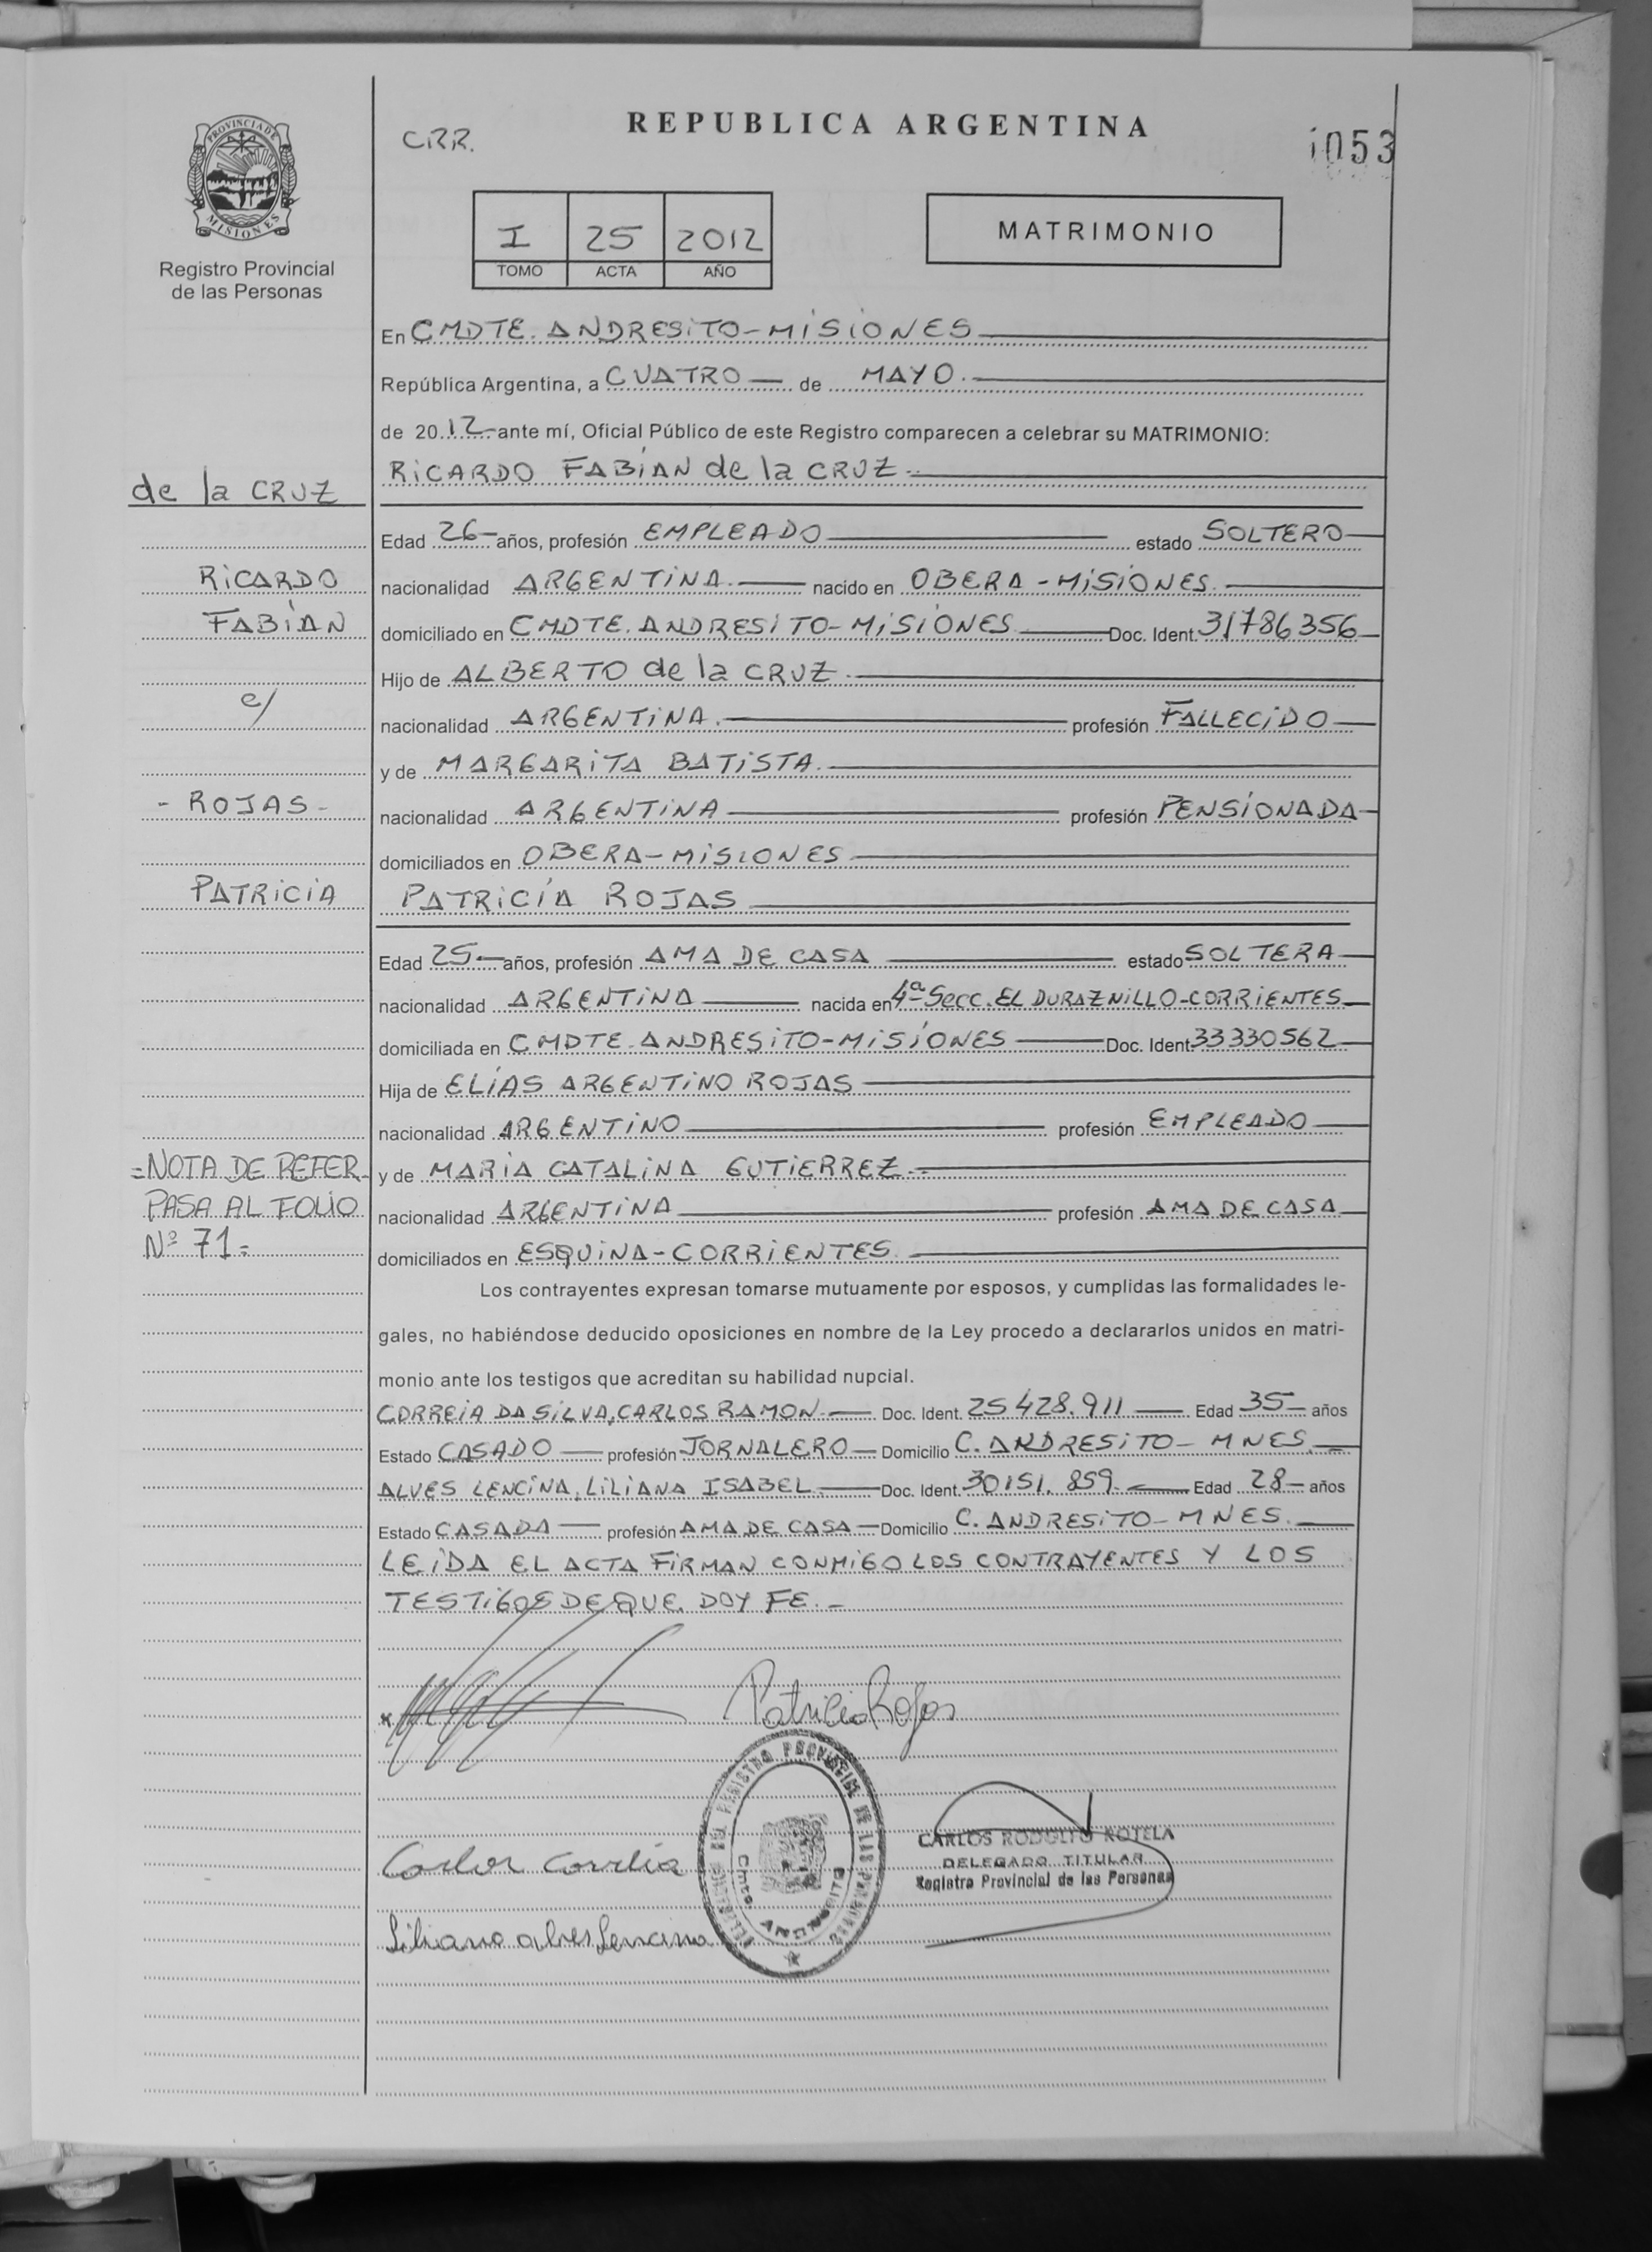 PROVINCIA DE
MISIONES
Registro Provincial
de las Personas
CRR.
REPUBLICA ARGENTINA
1053
I 25 2012
TOMO ACTA AÑO
MATRIMONIO
En CMDTE. ANDRESITO-MISIONES
República Argentina, a CUATRO de MAYO.
de 2012 ante mí, Oficial Público de este Registro comparecen a celebrar su MATRIMONIO:
RICARDO FABIAN de la CRUZ.
de la CRUZ
Edad 26 años, profesión EMPLEADO estado SOLTERO
RICARDO
nacionalidad ARGENTINA. nacido en OBERA - MISIONES.
FABIAN
domiciliado en CMDTE. ANDRESITO-MISIONES Doc. Ident. 31786356
Hijo de ALBERTO de la CRUZ.
c/
nacionalidad ARGENTINA. profesión FALLECIDO
y de MARGARITA BATISTA.
- ROJAS -
nacionalidad ARGENTINA profesión PENSIONADA
domiciliados en OBERA-MISIONES
PATRICIA
PATRICIA ROJAS
Edad 25 años, profesión AMA DE CASA estado SOLTERA
nacionalidad ARGENTINA nacida en 4ª Secc. EL DURAZNILLO-CORRIENTES
domiciliada en CMDTE. ANDRESITO-MISIONES Doc. Ident. 33330562
Hija de ELIAS ARGENTINO ROJAS
nacionalidad ARGENTINO profesión EMPLEADO
=NOTA DE REFER
y de MARIA CATALINA GUTIERREZ.
PASA AL FOLIO
nacionalidad ARGENTINA profesión AMA DE CASA
Nº 71=
domiciliados en ESQUINA-CORRIENTES.
Los contrayentes expresan tomarse mutuamente por esposos, y cumplidas las formalidades le-
gales, no habiéndose deducido oposiciones en nombre de la Ley procedo a declararlos unidos en matri-
monio ante los testigos que acreditan su habilidad nupcial.
CORREIA DA SILVA, CARLOS RAMON Doc. Ident. 25428.911 Edad 35 años
Estado CASADO profesión JORNALERO Domicilio C. ANDRESITO - MNES.
ALVES LENCINA, LILIANA ISABEL Doc. Ident. 30151.859 Edad 28 años
Estado CASADA profesión AMA DE CASA Domicilio C. ANDRESITO - MNES.
LEIDA EL ACTA FIRMAN CONMIGO LOS CONTRAYENTES Y LOS
TESTIGOS DE QUE DOY FE.-
Patricia Rojas
REGISTRO PROVINCIAL DE LAS PERSONAS
Cmte. ANDRESITO
CARLOS RODOLFO ROTELA
DELEGADO TITULAR
Registro Provincial de las Personas
Carlos Correia
Liliana alves Lencina